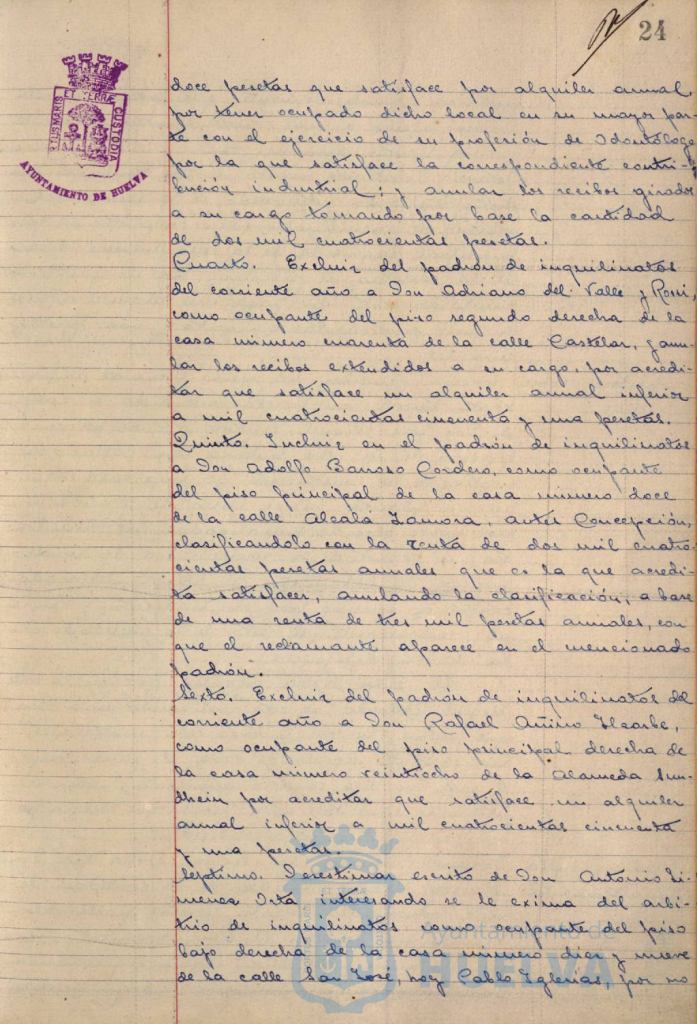 24
PORTUS MARIS ET TERRÆ CUSTODIA
AYUNTAMIENTO DE HUELVA
doce pesetas que satisface por alquiler anual
por tener ocupado dicho local en su mayor par-
te con el ejercicio de su profesión de Odontólogo
por la que satisface la correspondiente contri-
bución industrial; y anular los recibos girados
a su cargo tomando por base la cantidad
de dos mil cuatrocientas pesetas.
Cuarto. Excluir del padrón de inquilinatos
del corriente año a Don Adriano del Valle y Rossi,
como ocupante del piso segundo derecha de la
casa número cuarenta de la calle Castelar, y anu-
lar los recibos extendidos a su cargo, por acredi-
tar que satisface un alquiler anual inferior
a mil cuatrocientas cincuenta y una pesetas.
Quinto. Incluir en el padrón de inquilinatos
a Don Adolfo Barroso Cordero, como ocupante
del piso principal de la casa número doce
de la calle Alcalá Zamora, antes Concepción,
clasificandolo con la renta de dos mil cuatro-
cientas pesetas anuales que es la que acredi-
ta satisfacer, anulando la clasificación, a base
de una renta de tres mil pesetas anuales, con
que el reclamante aparece en el mencionado
padrón.
Sexto. Excluir del padrón de inquilinatos del
corriente año a Don Rafael
como ocupante del piso principal derecha de
la casa número veintiocho de la Alameda Sun-
dheim por acreditar que satisface un alquiler
anual inferior a mil cuatrocientas cincuenta
y una pesetas.
Septimo. Desestimar escrito de Don Antonio Ji-
menez Orta interesando se le exima del arbi-
trio de inquilinatos como ocupante del piso
bajo derecha de la casa número diez y nueve
de la calle San José, hoy Pablo Iglesias, por no
Ayuntamiento de
HUELVA